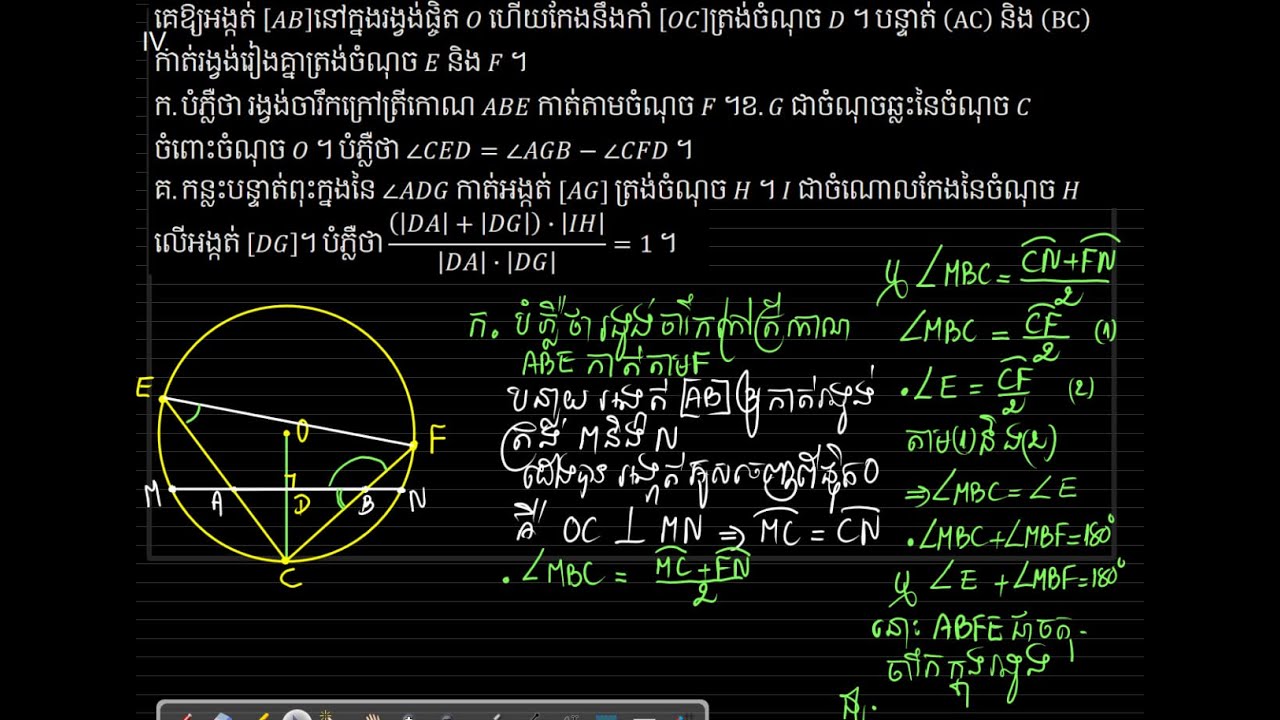 គេឱ្យអង្កត់ [AB]នៅក្នុងរង្វង់ផ្ចិត O ហើយកែងនឹងកាំ [OC]ត្រង់ចំណុច D ។ បន្ទាត់ (AC) និង (BC)
IV.
កាត់រង្វង់រៀងគ្នាត្រង់ចំណុច E និង F ។
ក.បំភ្លឺថា រង្វង់ចារឹកក្រៅត្រីកោណ ABE កាត់តាមចំណុច F ។ខ. G ជាចំណុចឆ្លុះនៃចំណុច C
ចំពោះចំណុច O ។ បំភ្លឺថា ∠CED = ∠AGB − ∠CFD ។
គ. កន្លះបន្ទាត់ពុះក្នុងនៃ ∠ADG កាត់អង្កត់ [AG] ត្រង់ចំណុច H ។ I ជាចំណោលកែងនៃចំណុច H
លើអង្កត់ [DG]។ បំភ្លឺថា (|DA| + |DG|) · |IH| / |DA| · |DG| = 1 ។
E
O
F
M A D B N
C
ក. បំភ្លឺថា រង្វង់ចារឹកក្រៅត្រីកោណ
ABE កាត់តាមF
បន្លាយ អង្កត់ [AB] ឲ្យ កាត់រង្វង់
ត្រង់ M និង N
គឺ OC ⊥ MN ⇒ MC = CN
. ∠MBC = MC + FN / 2
ឬ ∠MBC = CN + FN / 2
∠MBC = CF / 2 (1)
. ∠E = CF / 2 (2)
តាម(1)និង(2)
⇒ ∠MBC = ∠E
. ∠MBC + ∠MBF = 180°
ឬ ∠E + ∠MBF = 180°
នោះ ABFE ជាចតុ-
ចារឹកក្នុងរង្វង់